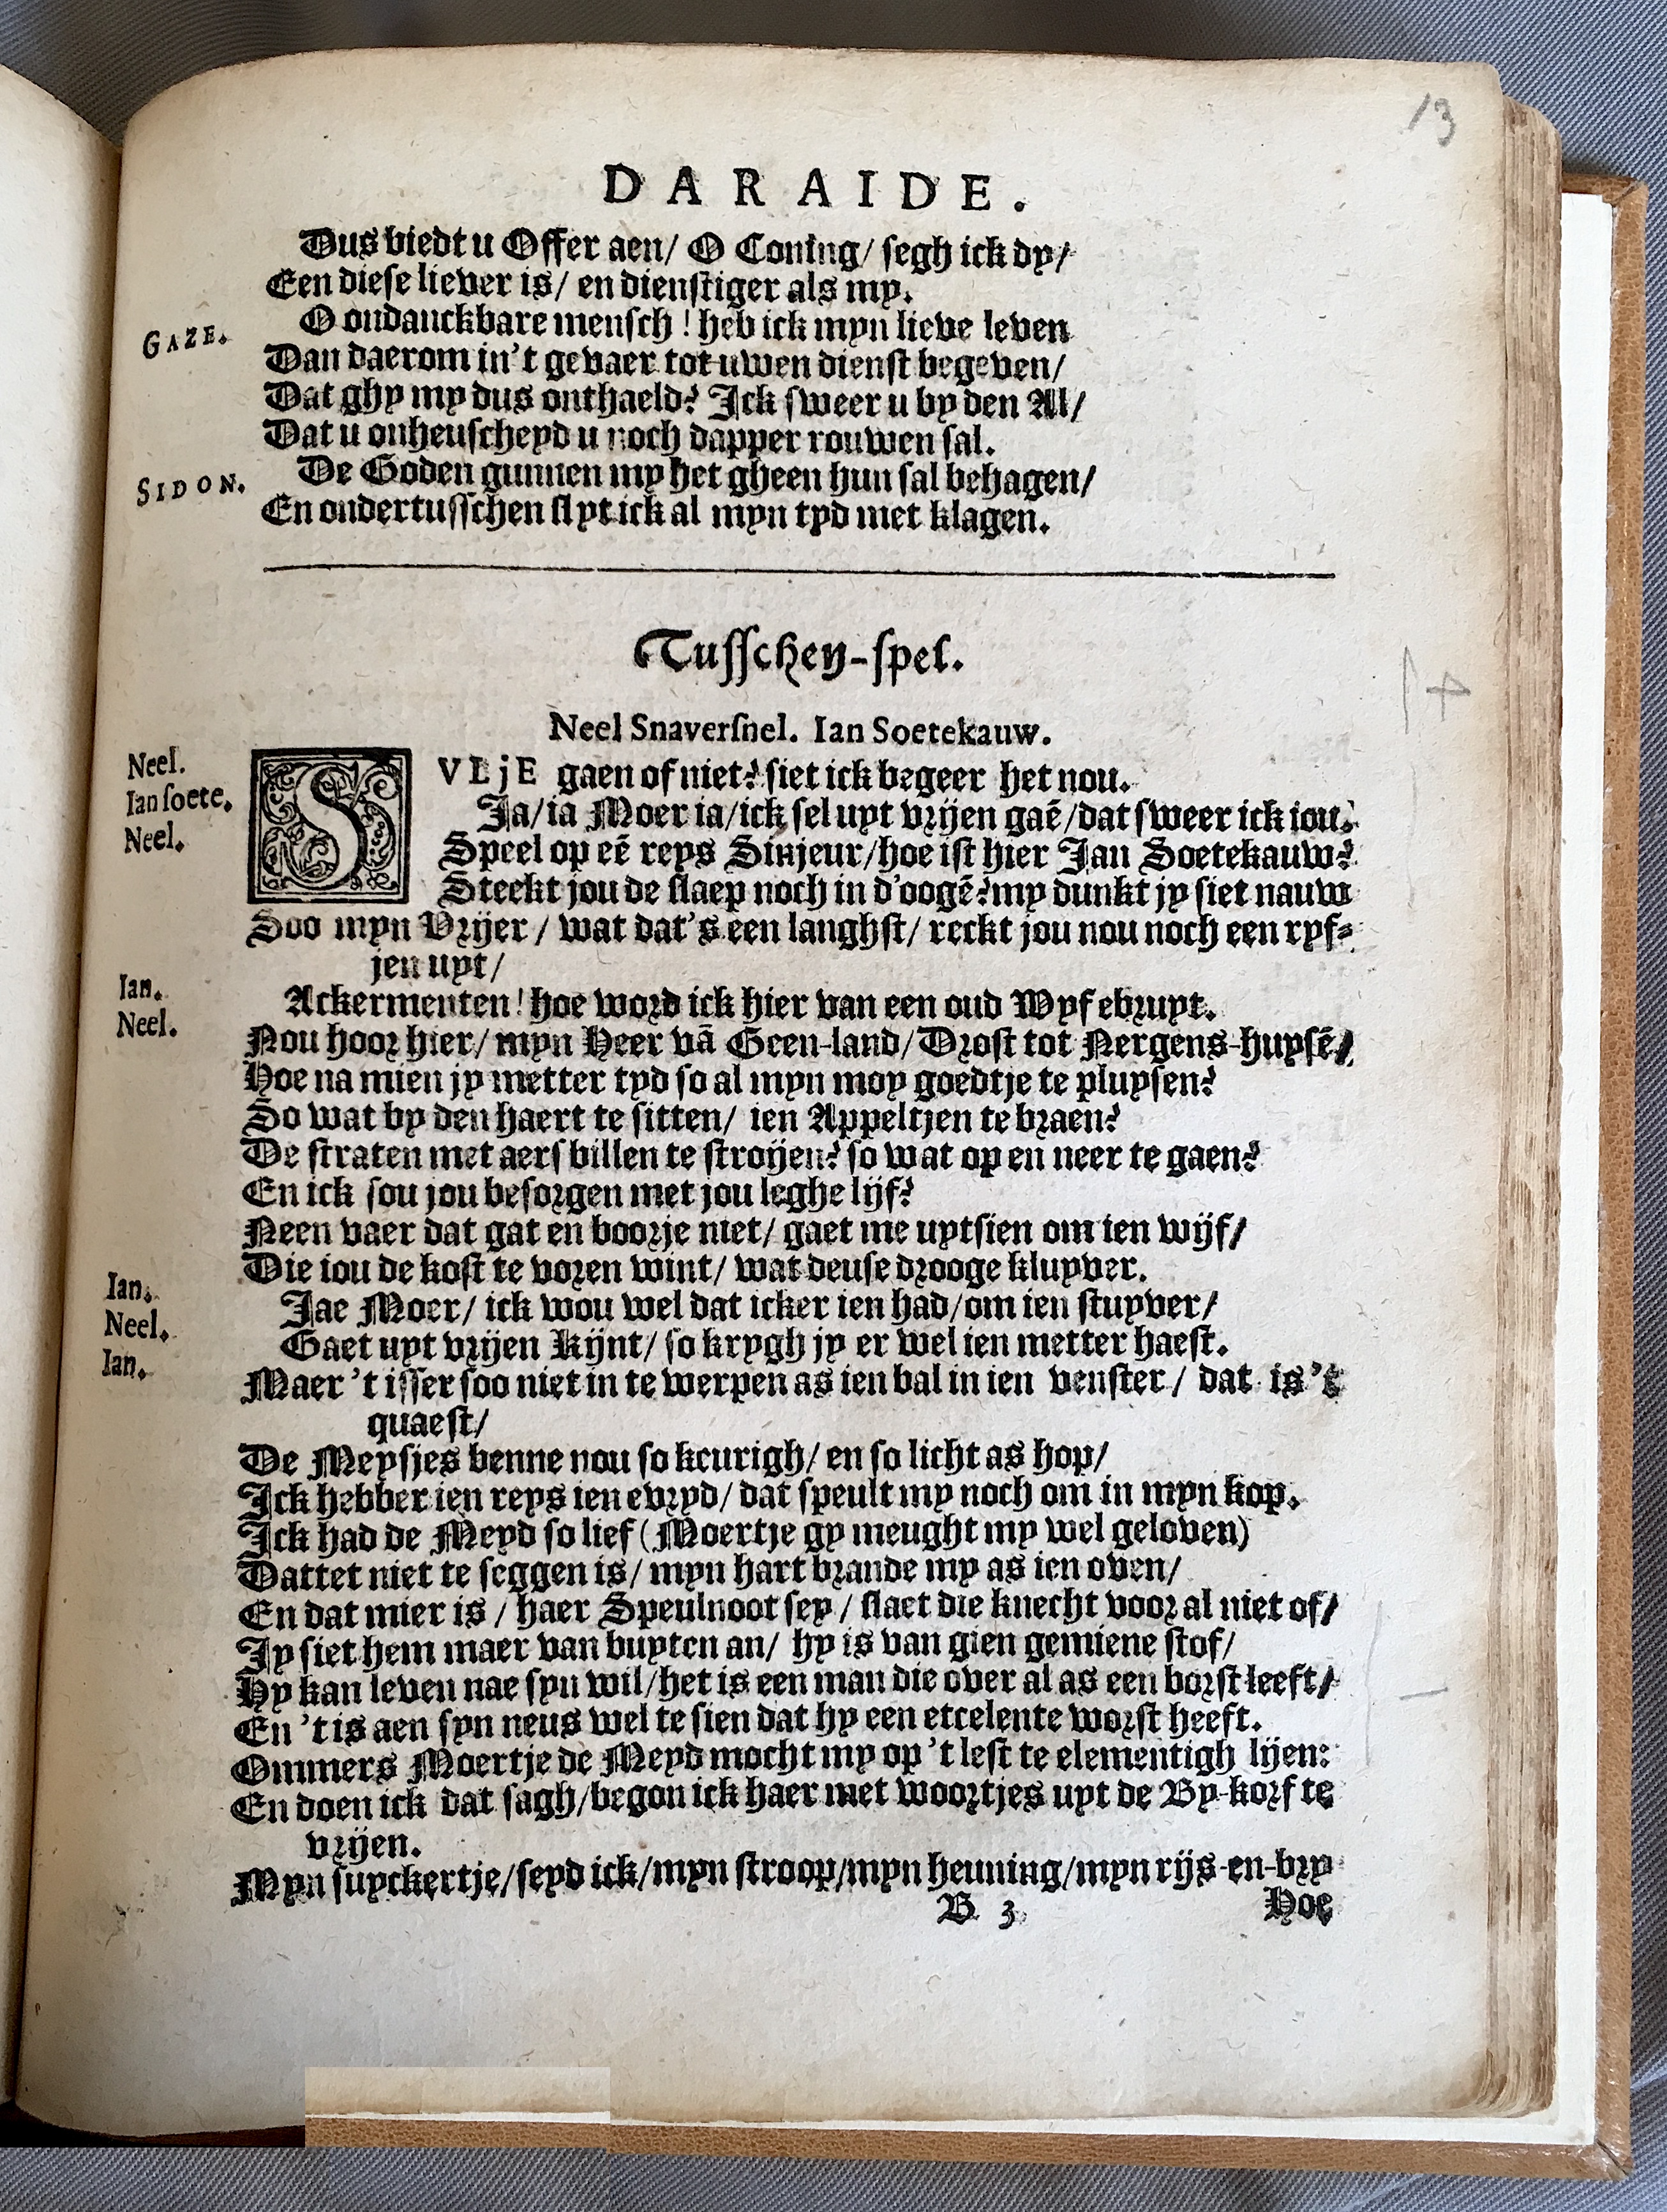 13
DARAIDE.
Dus biedt u Offer aen/ O Coning/ segh ick dy/
Een diese liever is/ en dienstiger als my.
GAZE. O ondanckbare mensch! heb ick myn lieve leven
Dan daerom in't gevaer tot uwen dienst begeven/
Dat ghy my dus onthaeld? Ick sweer u by den Al/
Dat u onheuscheyd u noch dapper rouwen sal.
SIDON. De Goden gunnen my het gheen hun sal behagen/
En ondertusschen slyt ick al myn tyd met klagen.
Tusschen-spel.
Neel Snaversnel. Ian Soetekauw.
Neel. SVLjE gaen of niet? siet ick begeer het nou.
Ian soete. Ja/ ia Moer ia/ ick sel uyt vrijen gaē/ dat sweer ick iou.
Neel. Speel op eē reys Sinjeur/ hoe ist hier Jan Soetekauw?
Steekt jou de slaep noch in d'oogē? my dunkt jy siet nauw
Soo myn Vrijer/ wat dat's een langhst/ reckt jou nou noch een ryf-
jen uyt/
Ian. Ackermenten! hoe word ick hier van een oud Wyf ebruyt.
Neel. Nou hoor hier/ myn Heer vā Geen-land/ Drost tot Nergens-huysē/
Hoe na mien jy metter tyd so al myn moy goedtje te pluysen?
So wat by den haert te sitten/ ien Appeltjen te braen?
De straten met aers billen te stroijen? so wat op en neer te gaen?
En ick sou jou besorgen met jou leghe lijf?
Neen vaer dat gat en boorje niet/ gaet me uytsien om ien wijf/
Die iou de kost te voren wint/ wat deuse drooge kluyver.
Ian. Jae Moer/ ick wou wel dat icker ien had/ om ien stuyver/
Neel. Gaet uyt vrijen Kijnt/ so krygh jy er wel ien metter haest.
Ian. Maer 't isser soo niet in te werpen as ien bal in ien venster/ dat is 't
quaest/
De Meysjes benne nou so keurigh/ en so licht as hop/
Ick hebber ien reys ien evryd/ dat speult my noch om in myn kop.
Ick had de Meyd so lief (Moertje gy meught my wel geloven)
Dattet niet te seggen is/ myn hart brande my as ien oven/
En dat mier is/ haer Speulnoot sey/ slaet die knecht voor al niet of/
Jy siet hem maer van buyten an/ hy is van gien gemiene stof/
Hy kan leven nae syn wil/ het is een man die over al as een borst leeft/
En 't is aen syn neus wel te sien dat hy een etcelente worst heeft.
Ommers Moertje de Meyd mocht my op 't lest te elementigh lijen:
En doen ick dat sagh/ begon ick haer met woortjes uyt de By-korf te
vrijen.
Myn suyckertje/ seyd ick/ myn stroop/ myn heuning/ myn rijs-en-bry
B 3 Hoe